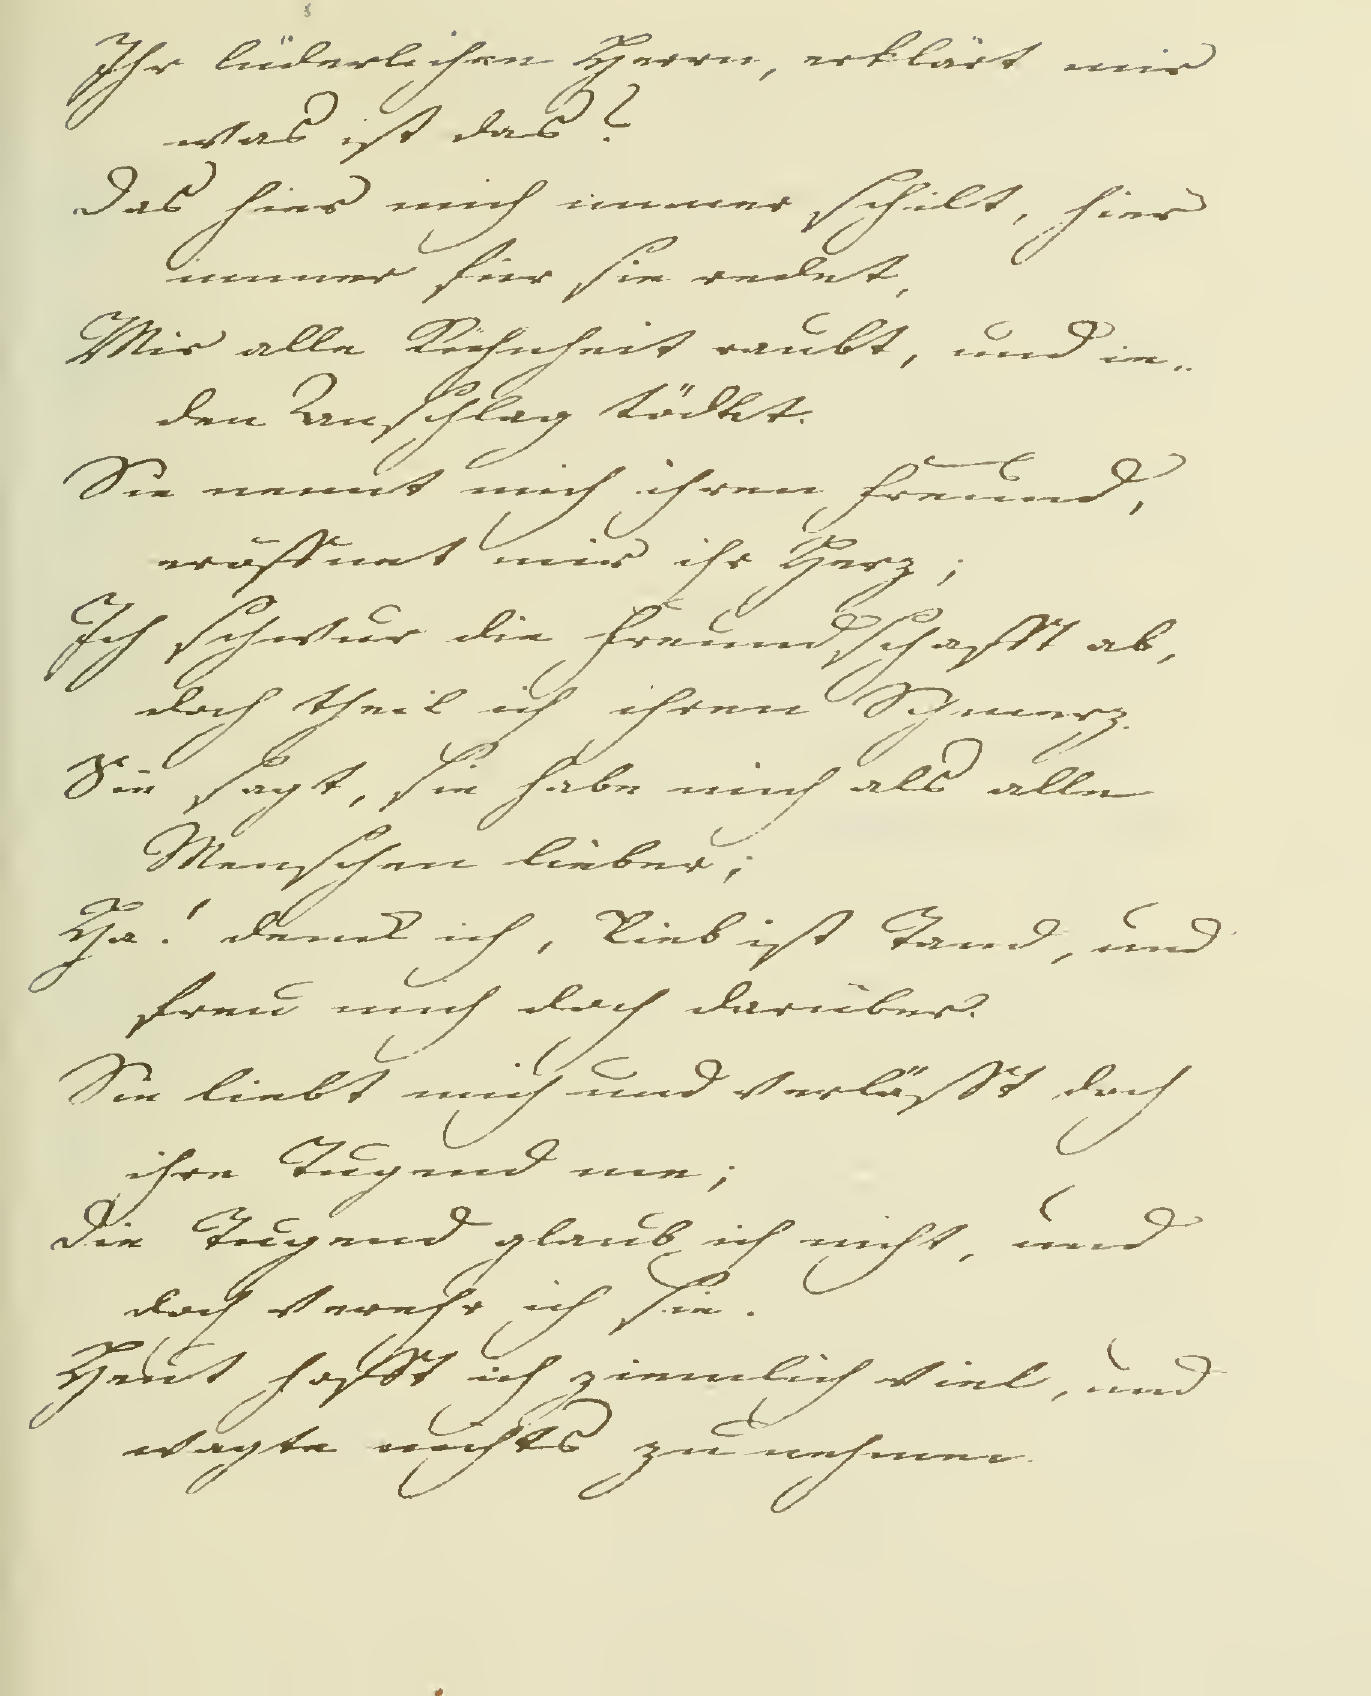 Ihr lüderlichen Herrn, erklärt mir
was ist das?
Das hier mich immer schilt, hier
immer für sie redet,
Mir alle Kühnheit raubt, und ie„
den Anschlag tödtet.
Sie nennt mich ihren Freund,
eröffnet mir ihr Herz;
Ich schwur die Freundschafft ab,
doch theil ich ihren Schmerz.
Sie sagt, sie habe mich als alle
Menschen lieber;
Ha! denck ich, Lieb ist Tand, und
freu mich doch darüber.
Sie liebt mich und verlässt doch
ihre Tugend nie;
Die Tugend glaub ich nicht, und
doch verehr ich sie.
Heut hofft ich ziemlich viel, und
wagte nichts zu nehmen